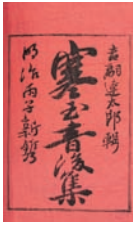 吉嗣達太郎輯
寒玉音後集
明治丙子新鐫